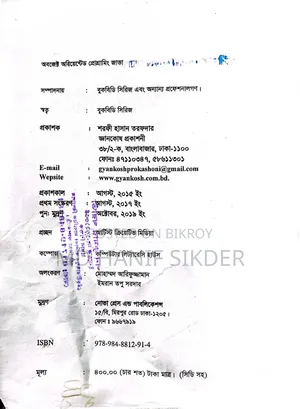 অবজেক্ট অরিয়েন্টেড প্রোগ্রামিং জাভা
সম্পাদনায় : বুকবিডি সিরিজ এবং অন্যান্য প্রফেশনালগণ।
স্বত্ব : বুকবিডি সিরিজ
প্রকাশক : শরফী হাসান তরফদার
জ্ঞানকোষ প্রকাশনী
৩৮/২-ক, বাংলাবাজার, ঢাকা-১১০০
ফোনঃ ৪৭১১০৩৪৭, ৫৮৬১১৩০১
E-mail : gyankoshprokashoni@gmail.com
Wepsite : www.gyankosh.com.bd.
প্রকাশকাল : আগস্ট, ২০১৫ ইং
প্রথম সংস্করণ : আগস্ট, ২০১৭ ইং
পুনঃ মুদ্রণ : অক্টোবর, ২০১৯ ইং
প্রচ্ছদ আর্টিস্ট ক্রিয়েটিভ মিডিয়া
POSTED ON BIKROY
কম্পোজ কম্পিউটার লিটারেসি হাউস
SIKDER
অলংকরণ মোহাম্মদ আরিফুজ্জামান
ইমরান তপু সরদার
মুদ্রণ : নোভা প্রেস এন্ড পাবলিকেশন্স
১৫/বি, মিরপুর রোড ঢাকা-১২০৫।
ফোন : ৯৬৬৭৯১৯
ISBN : 978-984-8812-91-4
মূল্য : ৪০০.০০ (চার শত) টাকা মাত্র। (সিডি সহ)